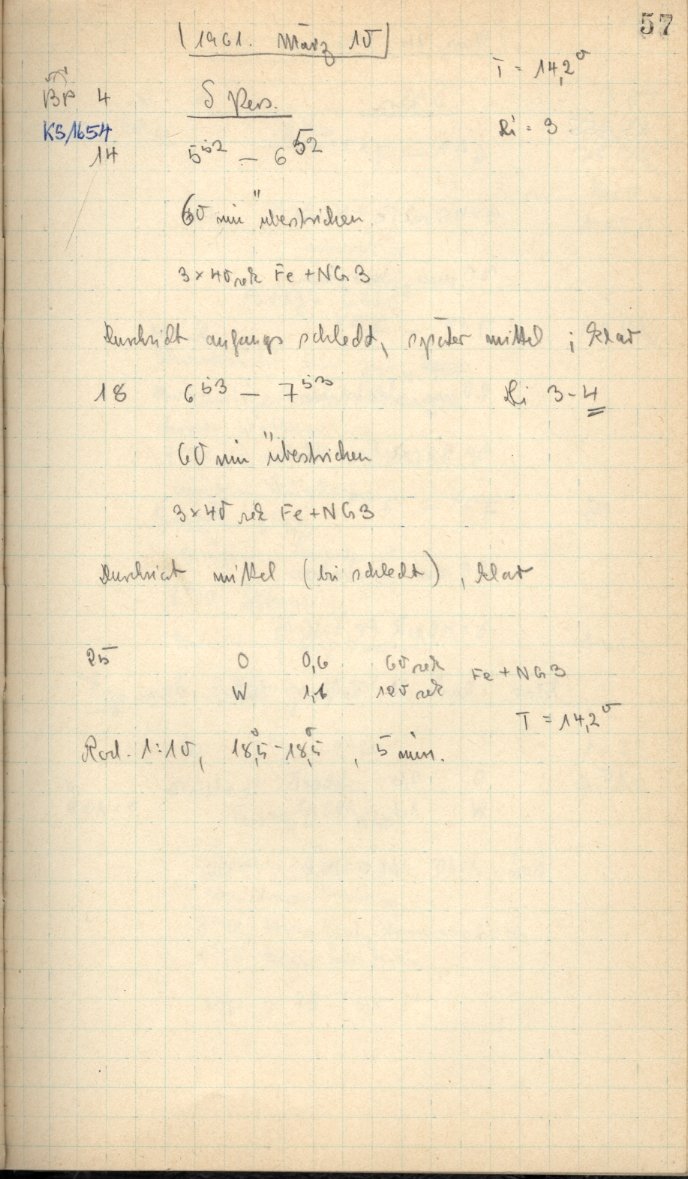 57
1961. März 10
T = 14,2°
BP 4
δ Pers.
KS 1654
Ri = 3
14 5⁵² — 6⁵²
60 min überstrichen
3 × 40 sek Fe + NG3
Durchsicht anfangs schlecht, später mittel ; klar
18 6⁵³ — 7⁵³ Ri 3-4
60 min überstrichen
3 × 40 sek Fe + NG3
Durchsicht mittel (bis schlecht), klar
25 O 0,6 60 sek Fe + NG3
W 1,6 120 sek
T = 14,2°
Rod. 1:10, 18,5° - 18,5°, 5 min.